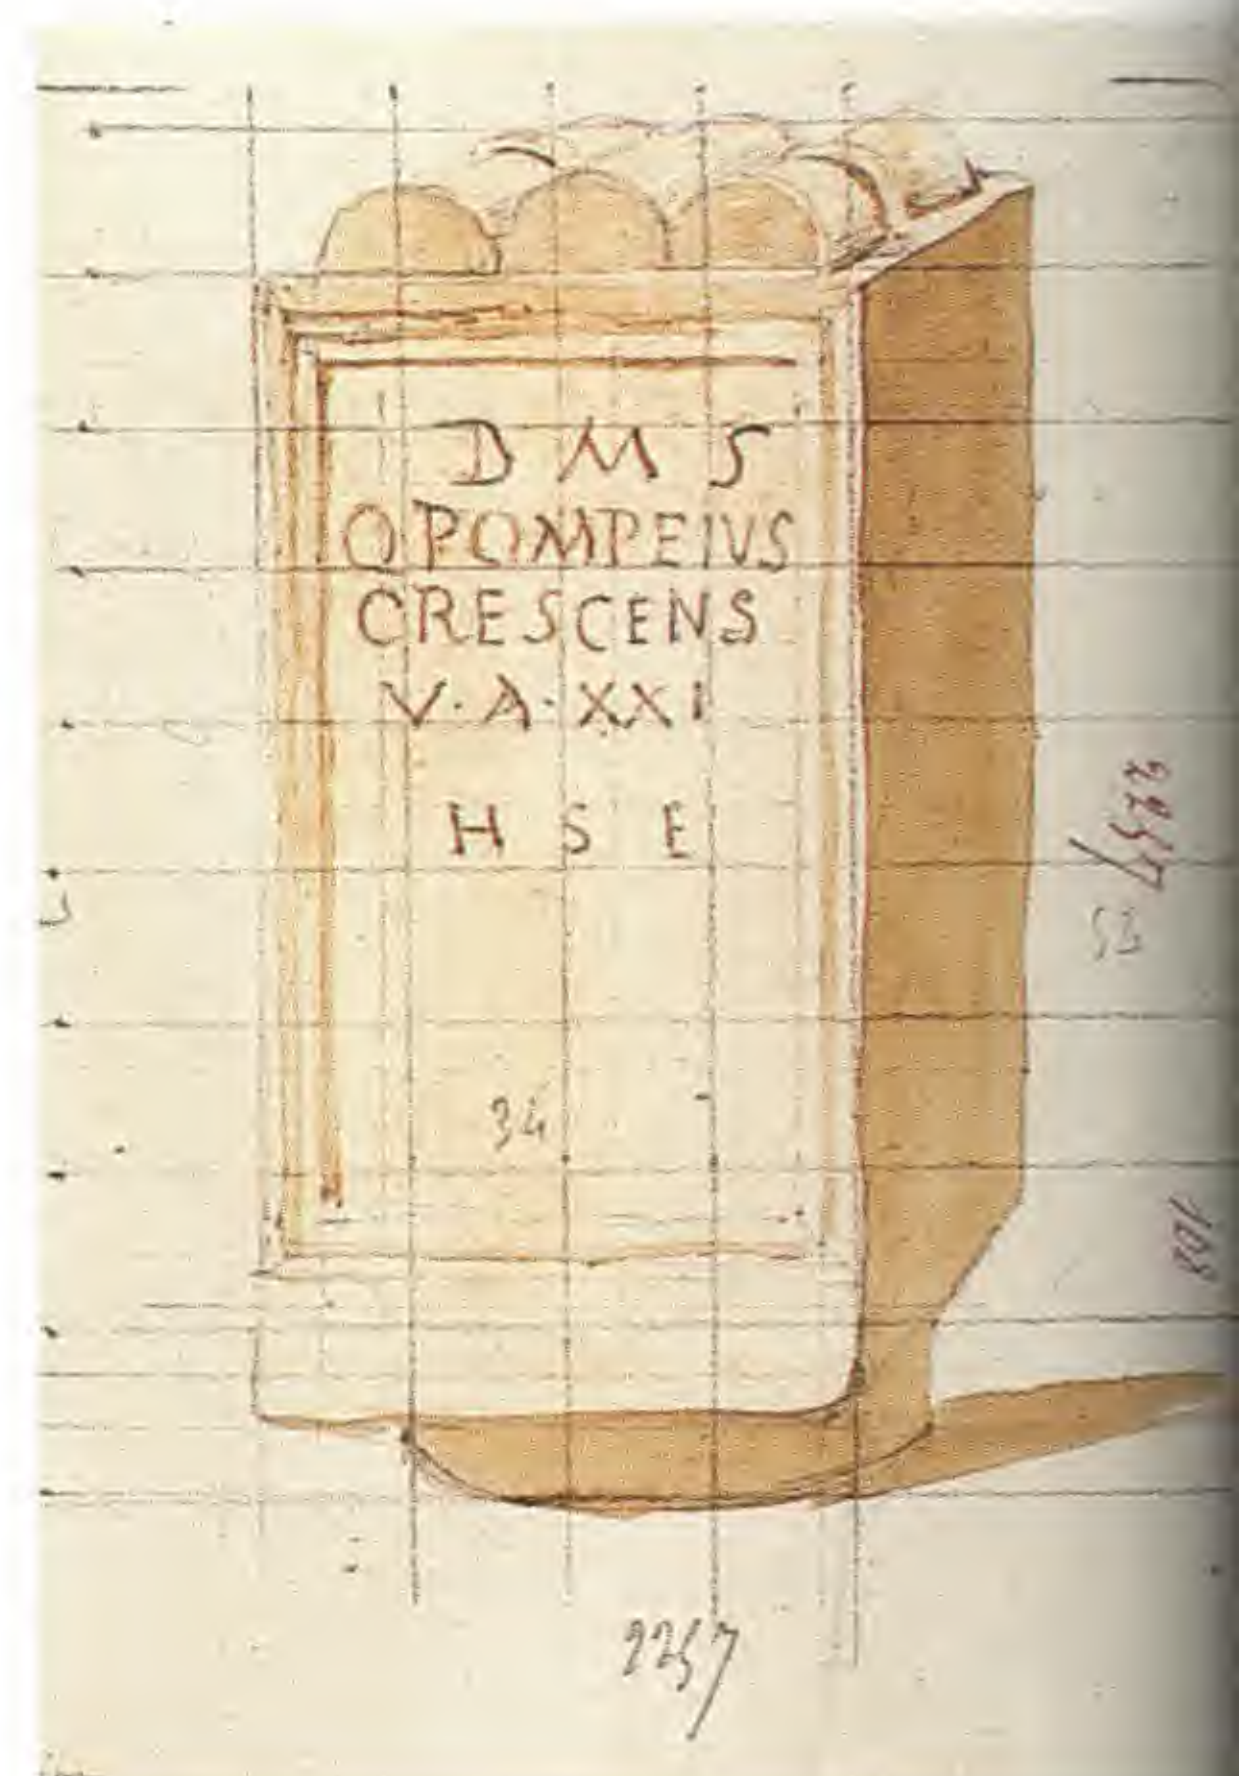 D M S
Q POMPEIUS
CRESCENS
V · A · XXI
H S E
34
2257
53
2257